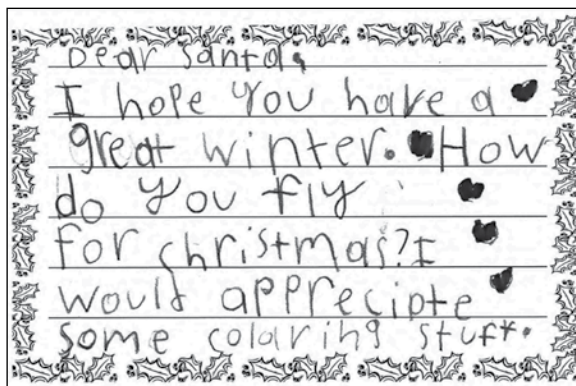 Dear Santa,
I hope you have a
great winter. How
do you fly
for christmas? I
would apprecipte
some coloring stuff.